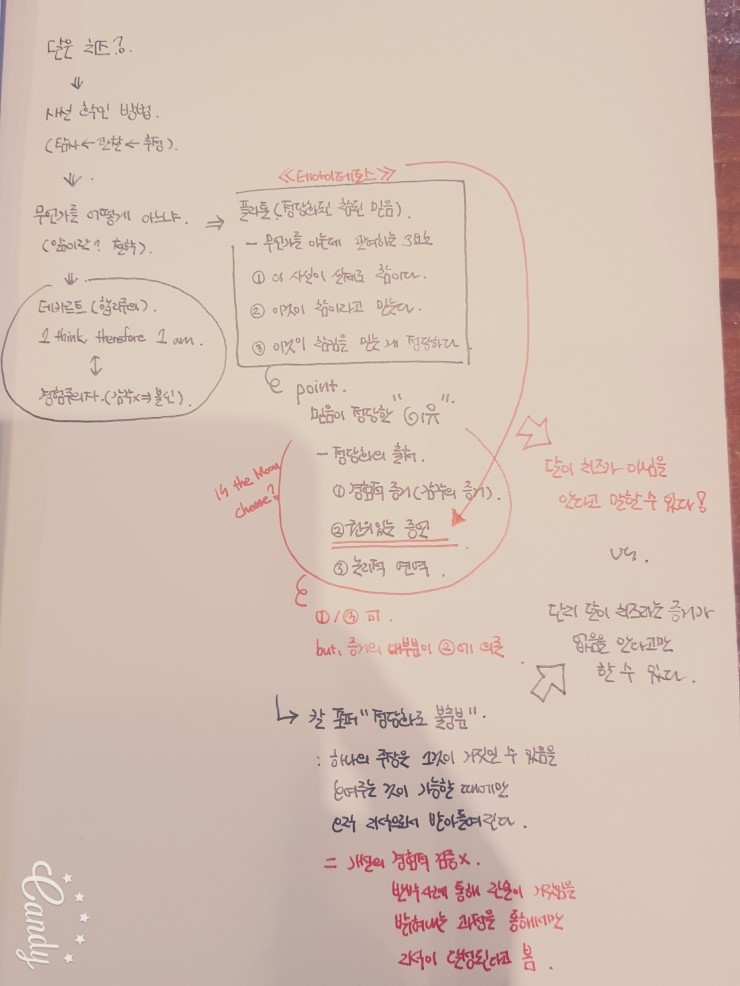 달은 치즈?
⇓
사실 확인 방법.
(탐사 ← 관찰 ← 추정).
⇓
무언가를 어떻게 아느냐. ⇒
(앎이란? 철학).
⇓
데카르트 (합리주의).
I think, therefore I am.
↕
경험주의자. (감각x ⇒ 불신).
≪테아이테토스≫
플라톤 (정당화된 참된 믿음).
- 무언가를 아는데 관여하는 3요소
① 이 사실이 실제로 참이다.
② 이것이 참이라고 믿는다.
③ 이것이 참임을 믿는 게 정당하다
point.
믿음이 정당한 "이유".
- 정당화의 출처.
① 경험적 증거 (감각의 증거).
② 권위있는 증언
③ 논리적 연역.
Is the Moon
cheese?
①/③ 피.
but, 증거의 대부분이 ②에 의존.
달이 치즈가 아님을
안다고 말할 수 있다!
vs.
단지 달이 치즈라는 증거가
없음을 안다고만
할 수 있다.
↳ 칼 포퍼 "정당화로 불충분".
: 하나의 주장은 그것이 거짓일 수 있음을
보여주는 것이 가능할 때에만
오직 지식으로서 받아들여진다.
= 가설의 경험적 검증x.
반박사례 통해 관찰이 거짓임을
밝혀내는 과정을 통해서만
지식이 달성된다고 봄.
Candy